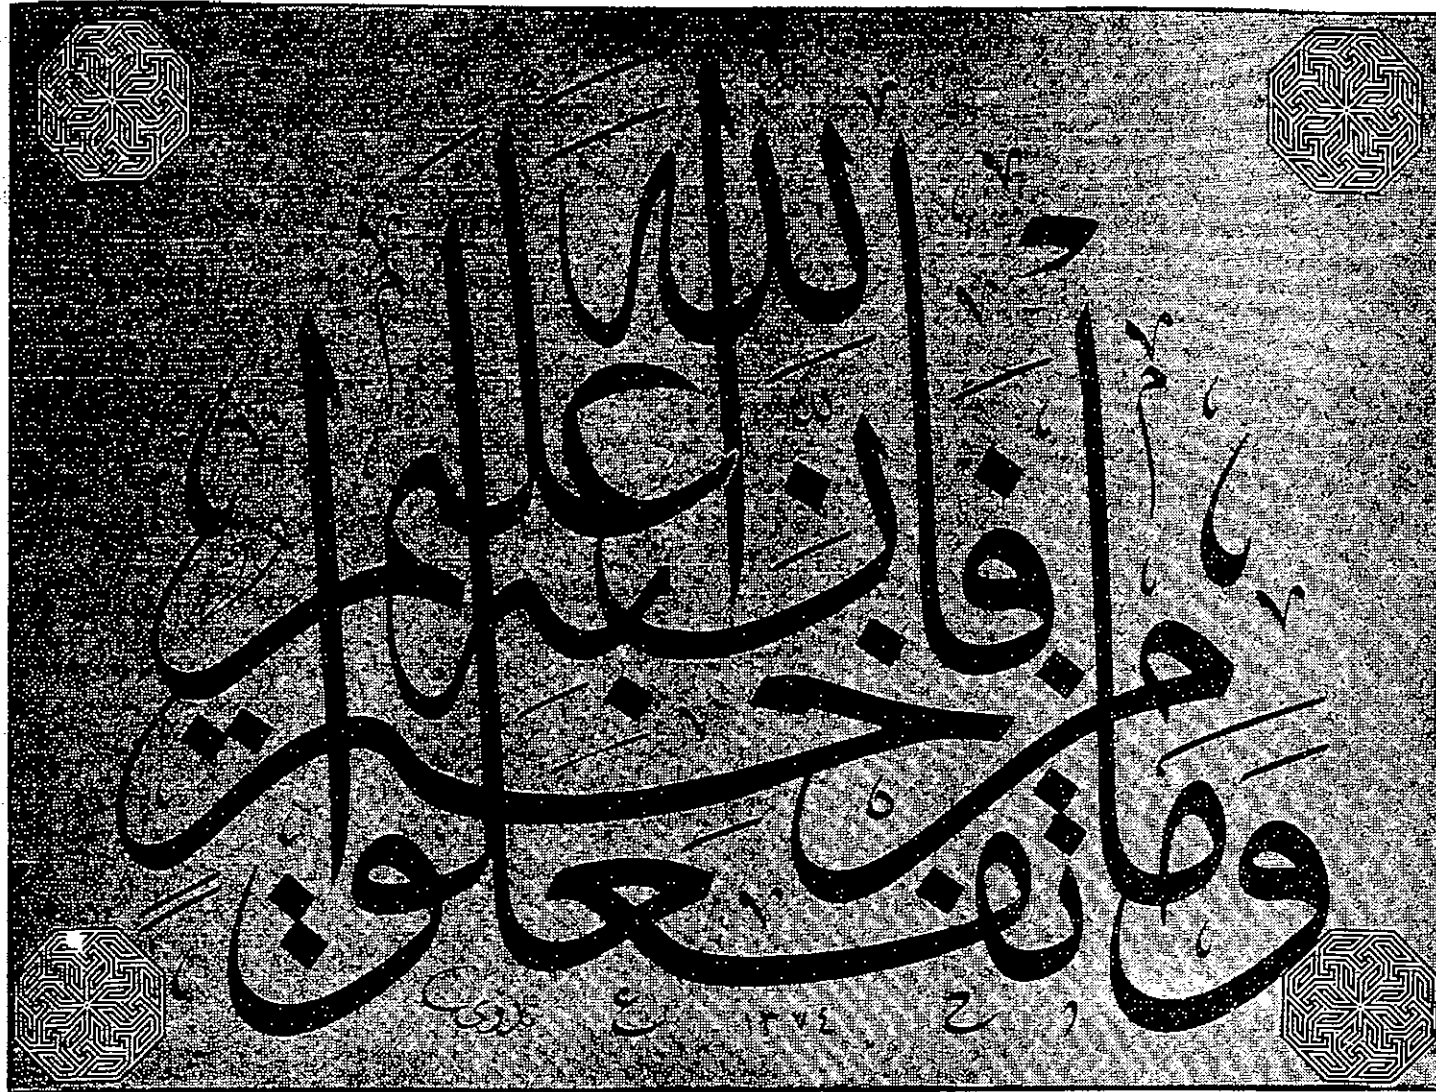 وما تفعلوا من خير فإن الله به عليم
١٣٧٤
بدوي